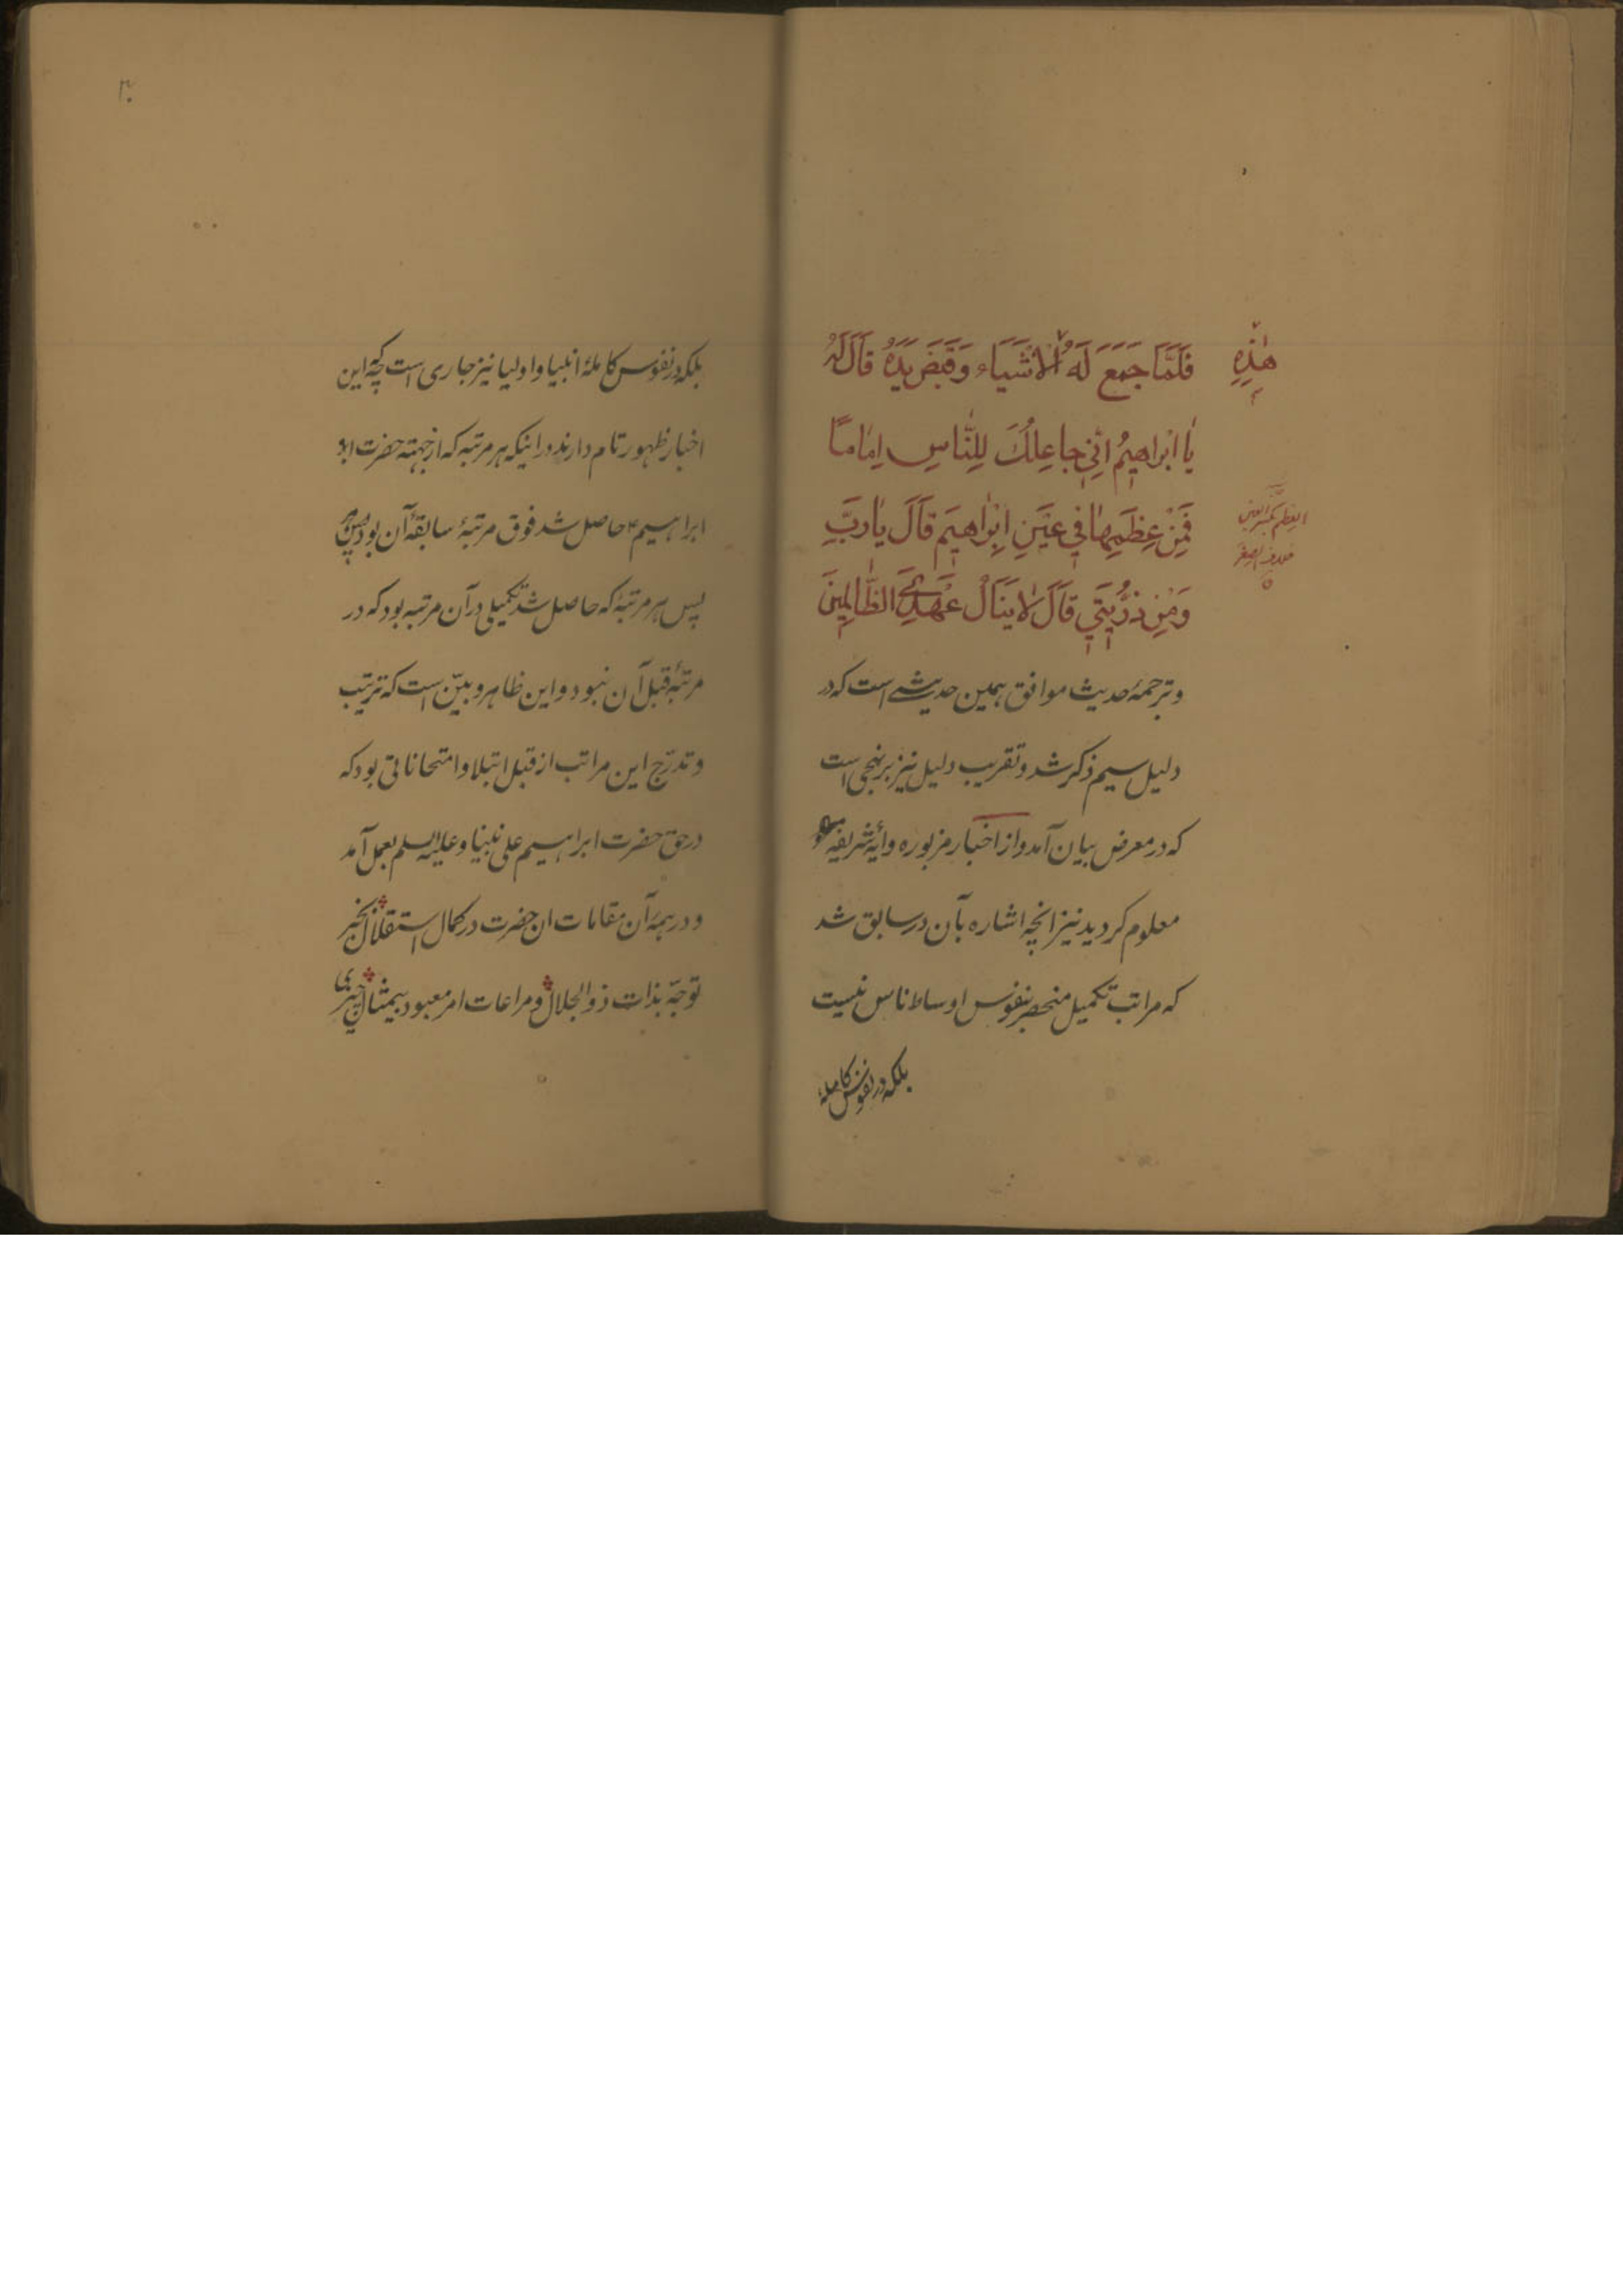 فَلَمَّا جَمَعَ لَهُ الْاَشْيَاءَ وَقَبَضَ يَدَهُ قَالَ لَهُ
هٰذِهِ
يَا اِبْرَاهِيمُ اِنِّي جَاعِلُكَ لِلنَّاسِ اِمَامًا
فَمِنْ عِظَمِهَا فِي عَيْنِ اِبْرَاهِيمَ قَالَ يَا رَبِّ
العظم بكسر العين
خلاف الصغر
وَمِنْ ذُرِّيَّتِي قَالَ لَا يَنَالُ عَهْدِي الظَّالِمِينَ
و ترجمهٔ حدیث موافق همین حدیثی است که در
دلیل سیم ذکر شد و تقریب دلیل نیز بر نهجی است
که در معرض بیان آمد و از اخبار مزبوره و آیهٔ شریفه
معلوم کردید نیز انچه اشاره بآن در سابق شد
که مراتب تکمیل منحصر بنفوس اوساط ناس نیست
بلکه در نفوس کاملهٔ
۳۰
بلکه در نفوس کاملهٔ انبیا و اولیا نیز جاری است چه این
اخبار ظهور تام دارند در اینکه هر مرتبه که از جهته حضرت
ابراهیم ع حاصل شد فوق مرتبهٔ سابقهٔ آن بود
پس هر مرتبهٔ که حاصل شد تکمیلی در آن مرتبه بود که در
مرتبهٔ قبل آن نبود و این ظاهر و بیّن است که ترتیب
و تدرّج این مراتب از قبل ابتلا و امتحاناتی بود که
در حق حضرت ابراهیم علی نبینا و علیه السلم بعمل آمد
و در همهٔ آن مقامات ان حضرت در کمال استقلال بخیر
توجّه بذات ذو الجلال و مراعات امر معبود بیمثال چیزی